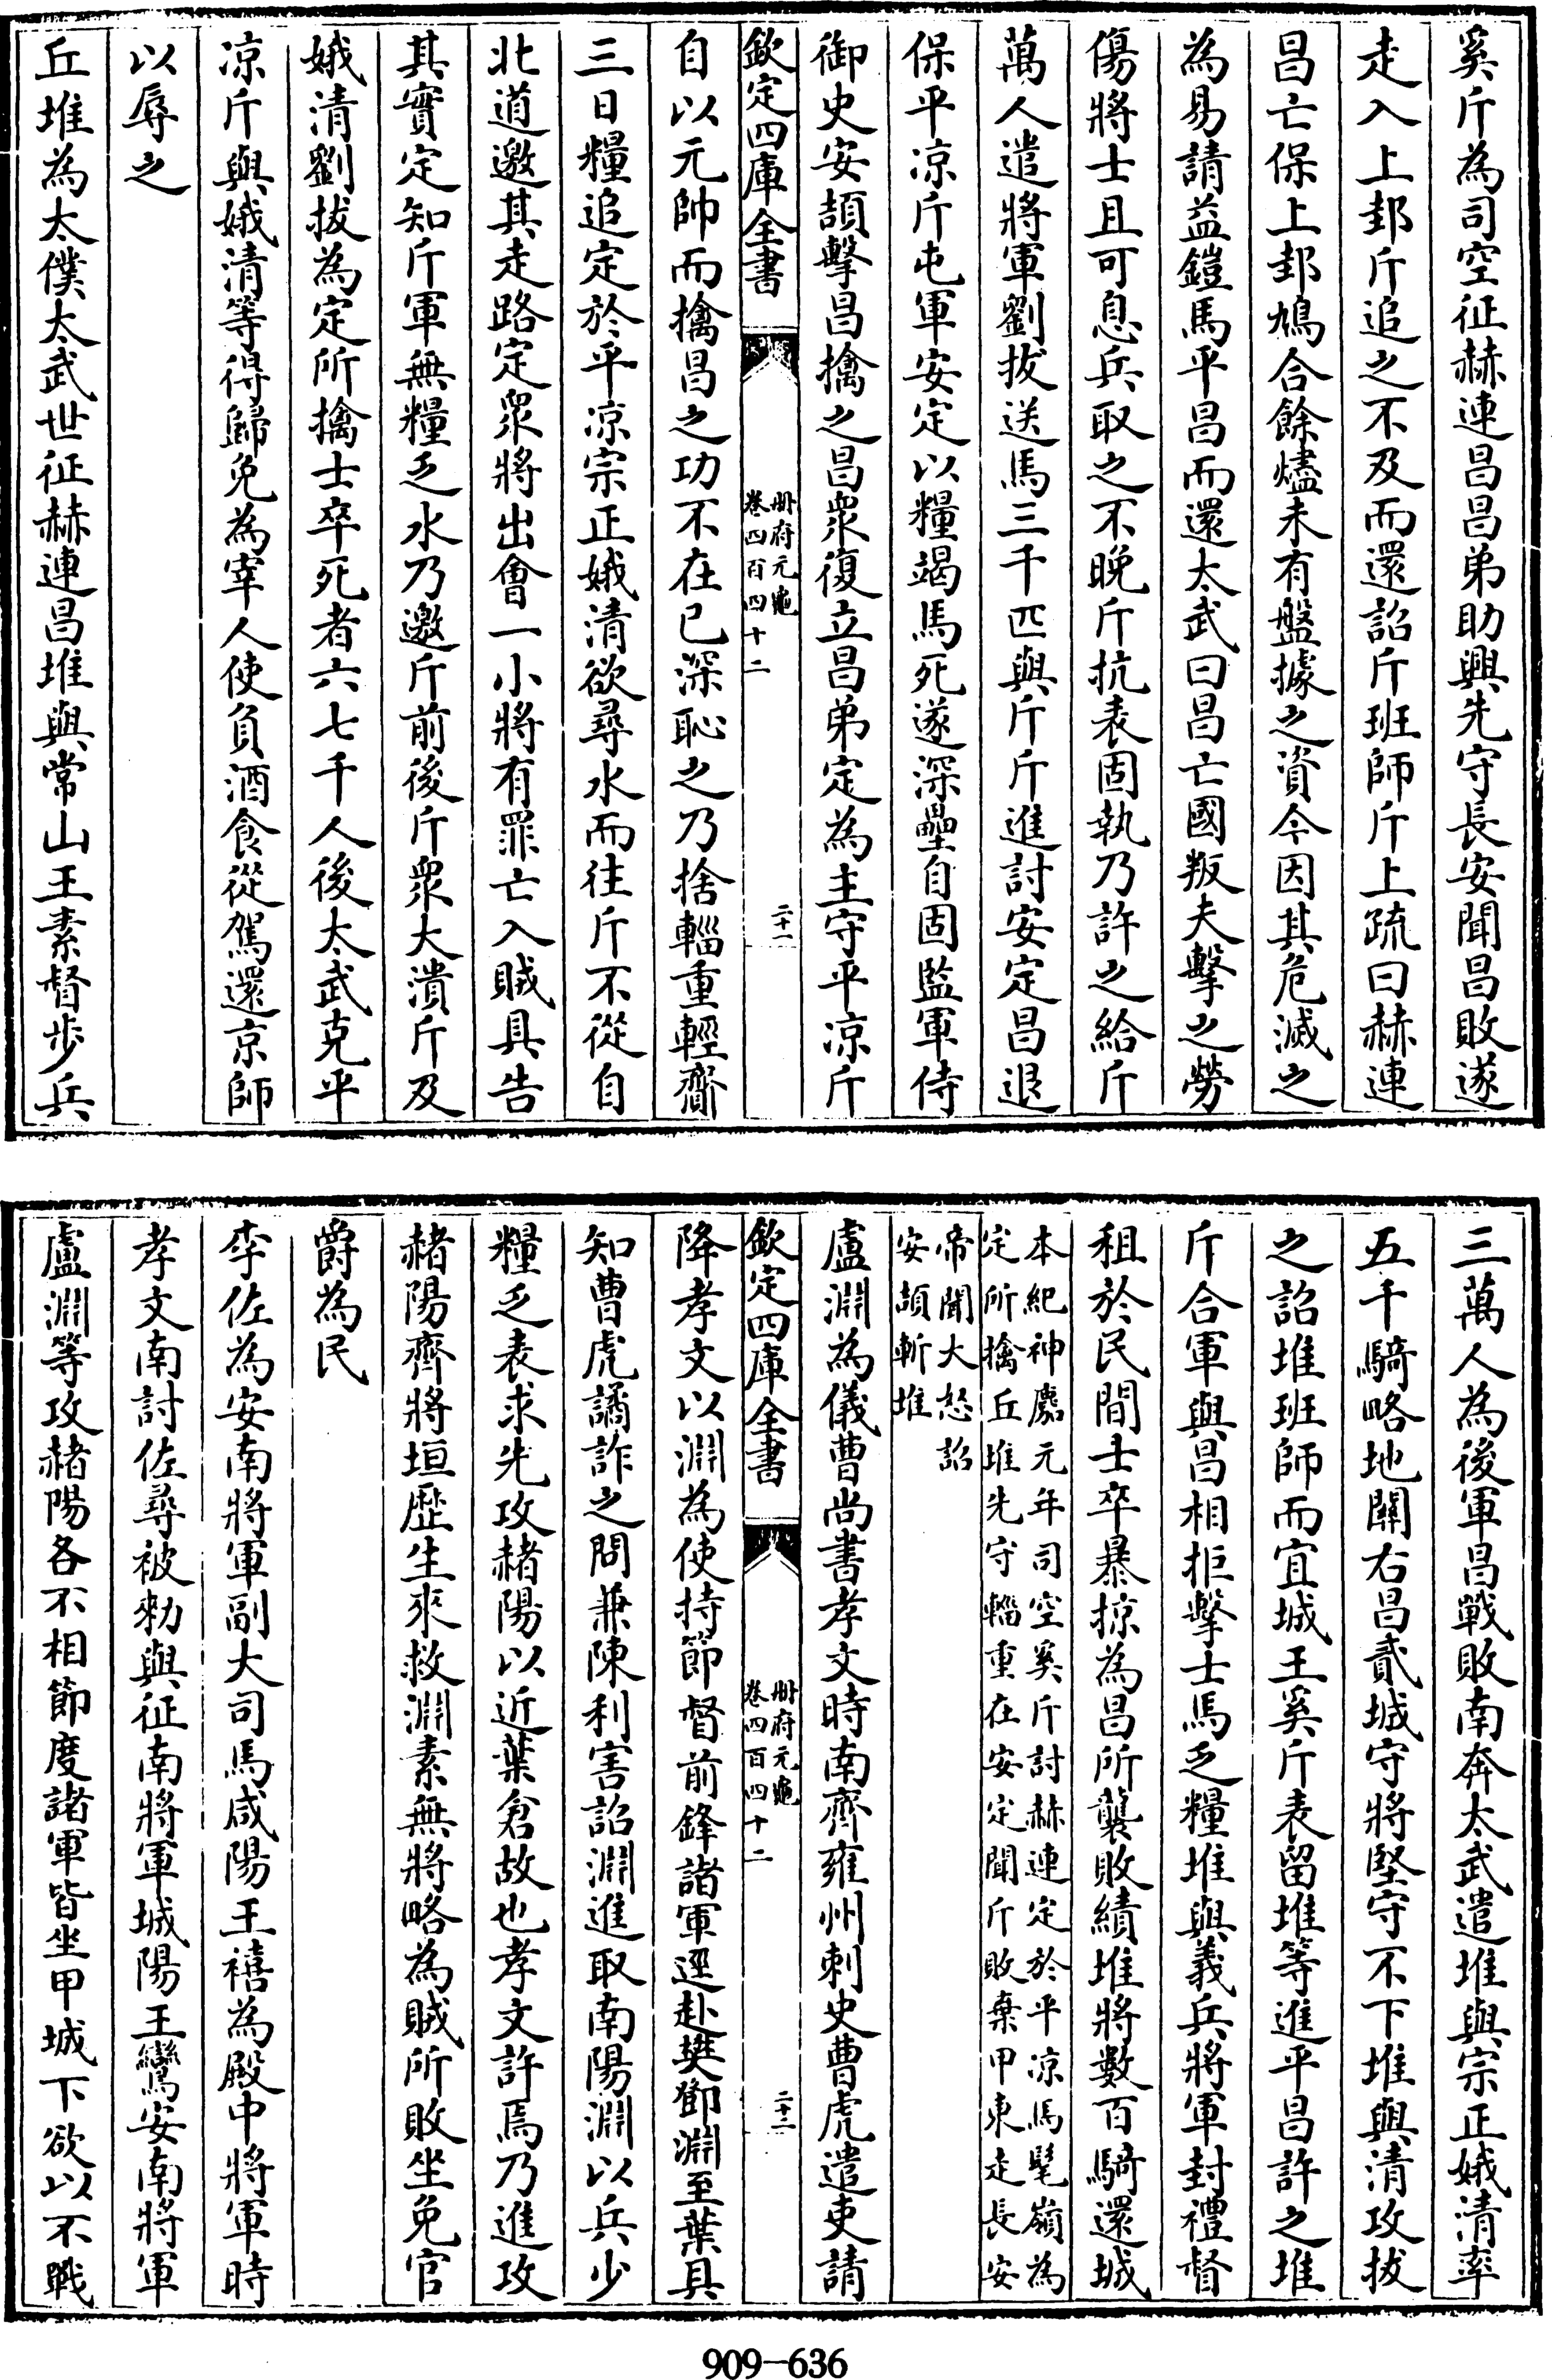 奚斤為司空征赫連昌昌弟助興先守長安聞昌敗遂
走入上邽斤追之不及而還詔斤班師斤上疏曰赫連
昌亡保上邽鳩合餘燼未有盤據之資今因其危滅之
為易請益鎧馬平昌而還太武曰昌亡國叛夫擊之勞
傷將士且可息兵取之不晚斤抗表固執乃許之給斤
萬人遣將軍劉拔送馬三千匹與斤斤進討安定昌退
保平凉斤屯軍安定以糧竭馬死遂深壘自固監軍侍
御史安頡擊昌擒之昌衆復立昌弟定為主守平凉斤
欽定四庫全書
冊府元龜
卷四百四十二
二十一
自以元帥而擒昌之功不在已深恥之乃捨輜重輕齎
三日糧追定於平凉宗正娥清欲尋水而往斤不從自
北道邀其走路定衆將出會一小將有罪亡入賊具告
其實定知斤軍無糧乏水乃邀斤前後斤衆大潰斤及
娥清劉拔為定所擒士卒死者六七千人後太武克平
凉斤與娥清等得歸免為宰人使負酒食從駕還京師
以辱之
丘堆為太僕太武世征赫連昌堆與常山王素督步兵
三萬人為後軍昌戰敗南奔太武遣堆與宗正娥清率
五千騎略地關右昌貳城守將堅守不下堆與清攻拔
之詔堆班師而宜城王奚斤表留堆等進平昌許之堆
斤合軍與昌相拒擊士馬乏糧堆與義兵將軍封禮督
租於民間士卒暴掠為昌所襲敗績堆將數百騎還城
本紀神䴥元年司空奚斤討赫連定於平凉馬髦嶺為
定所擒丘堆先守輜重在安定聞斤敗棄甲東走長安
帝聞大怒詔
安頡斬堆
盧淵為儀曹尚書孝文時南齊雍州刺史曹虎遣吏請
欽定四庫全書
冊府元龜
卷四百四十二
二十二
降孝文以淵為使持節督前鋒諸軍逕赴樊鄧淵至葉具
知曹虎譎詐之問兼陳利害詔淵進取南陽淵以兵少
糧乏表求先攻赭陽以近葉倉故也孝文許焉乃進攻
赭陽齊將垣歷生來救淵素無將略為賊所敗坐免官
爵為民
李佐為安南將軍副大司馬咸陽王禧為殿中將軍時
孝文南討佐尋被勑與征南將軍城陽王鸞安南將軍
盧淵等攻赭陽各不相節度諸軍皆坐甲城下欲以不戰
909-636